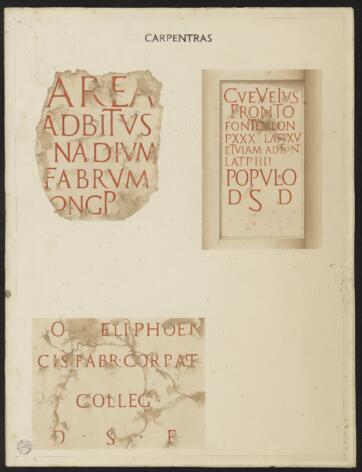 CARPENTRAS
AREA
ADBITVS
NADIVM
FABRVM
ONGP
CVEVEIVS
FRONTO
FONTEM LON
PXXX LATPXV
ETVIAM ADFONT
LATPIIII
POPVLO
D S D
O ELIPHOEN
CIS FABR·CORPAT
COLLEG
D · S · F